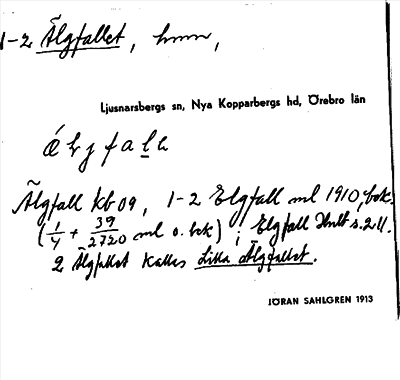 1-2 Älgfallet, hmn,
Ljusnarsbergs sn, Nya Kopparbergs hd, Örebro län
Älgfall kb 09, 1-2 Elgfall ml 1910, bok.
(1/4 + 39/2720 ml o. bok) i Elgfall Hult s. 211.
2 Älgfallet kallas Lilla Älgfallet.
JÖRAN SAHLGREN 1913